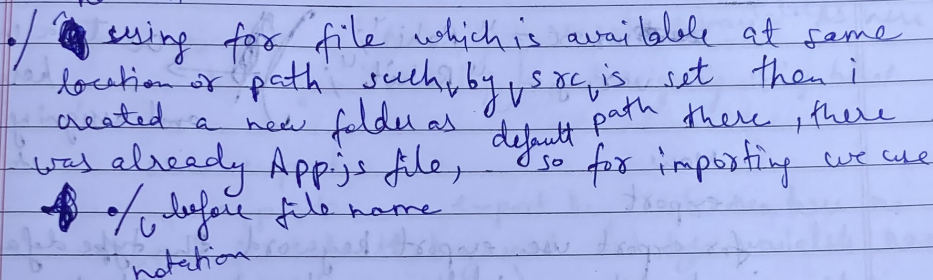 ./ using for file which is available at same
location or path such, by, src, is set then i
created a new folder as default path there, there
was already App.js file, so for importing we use
./ before file name
notation